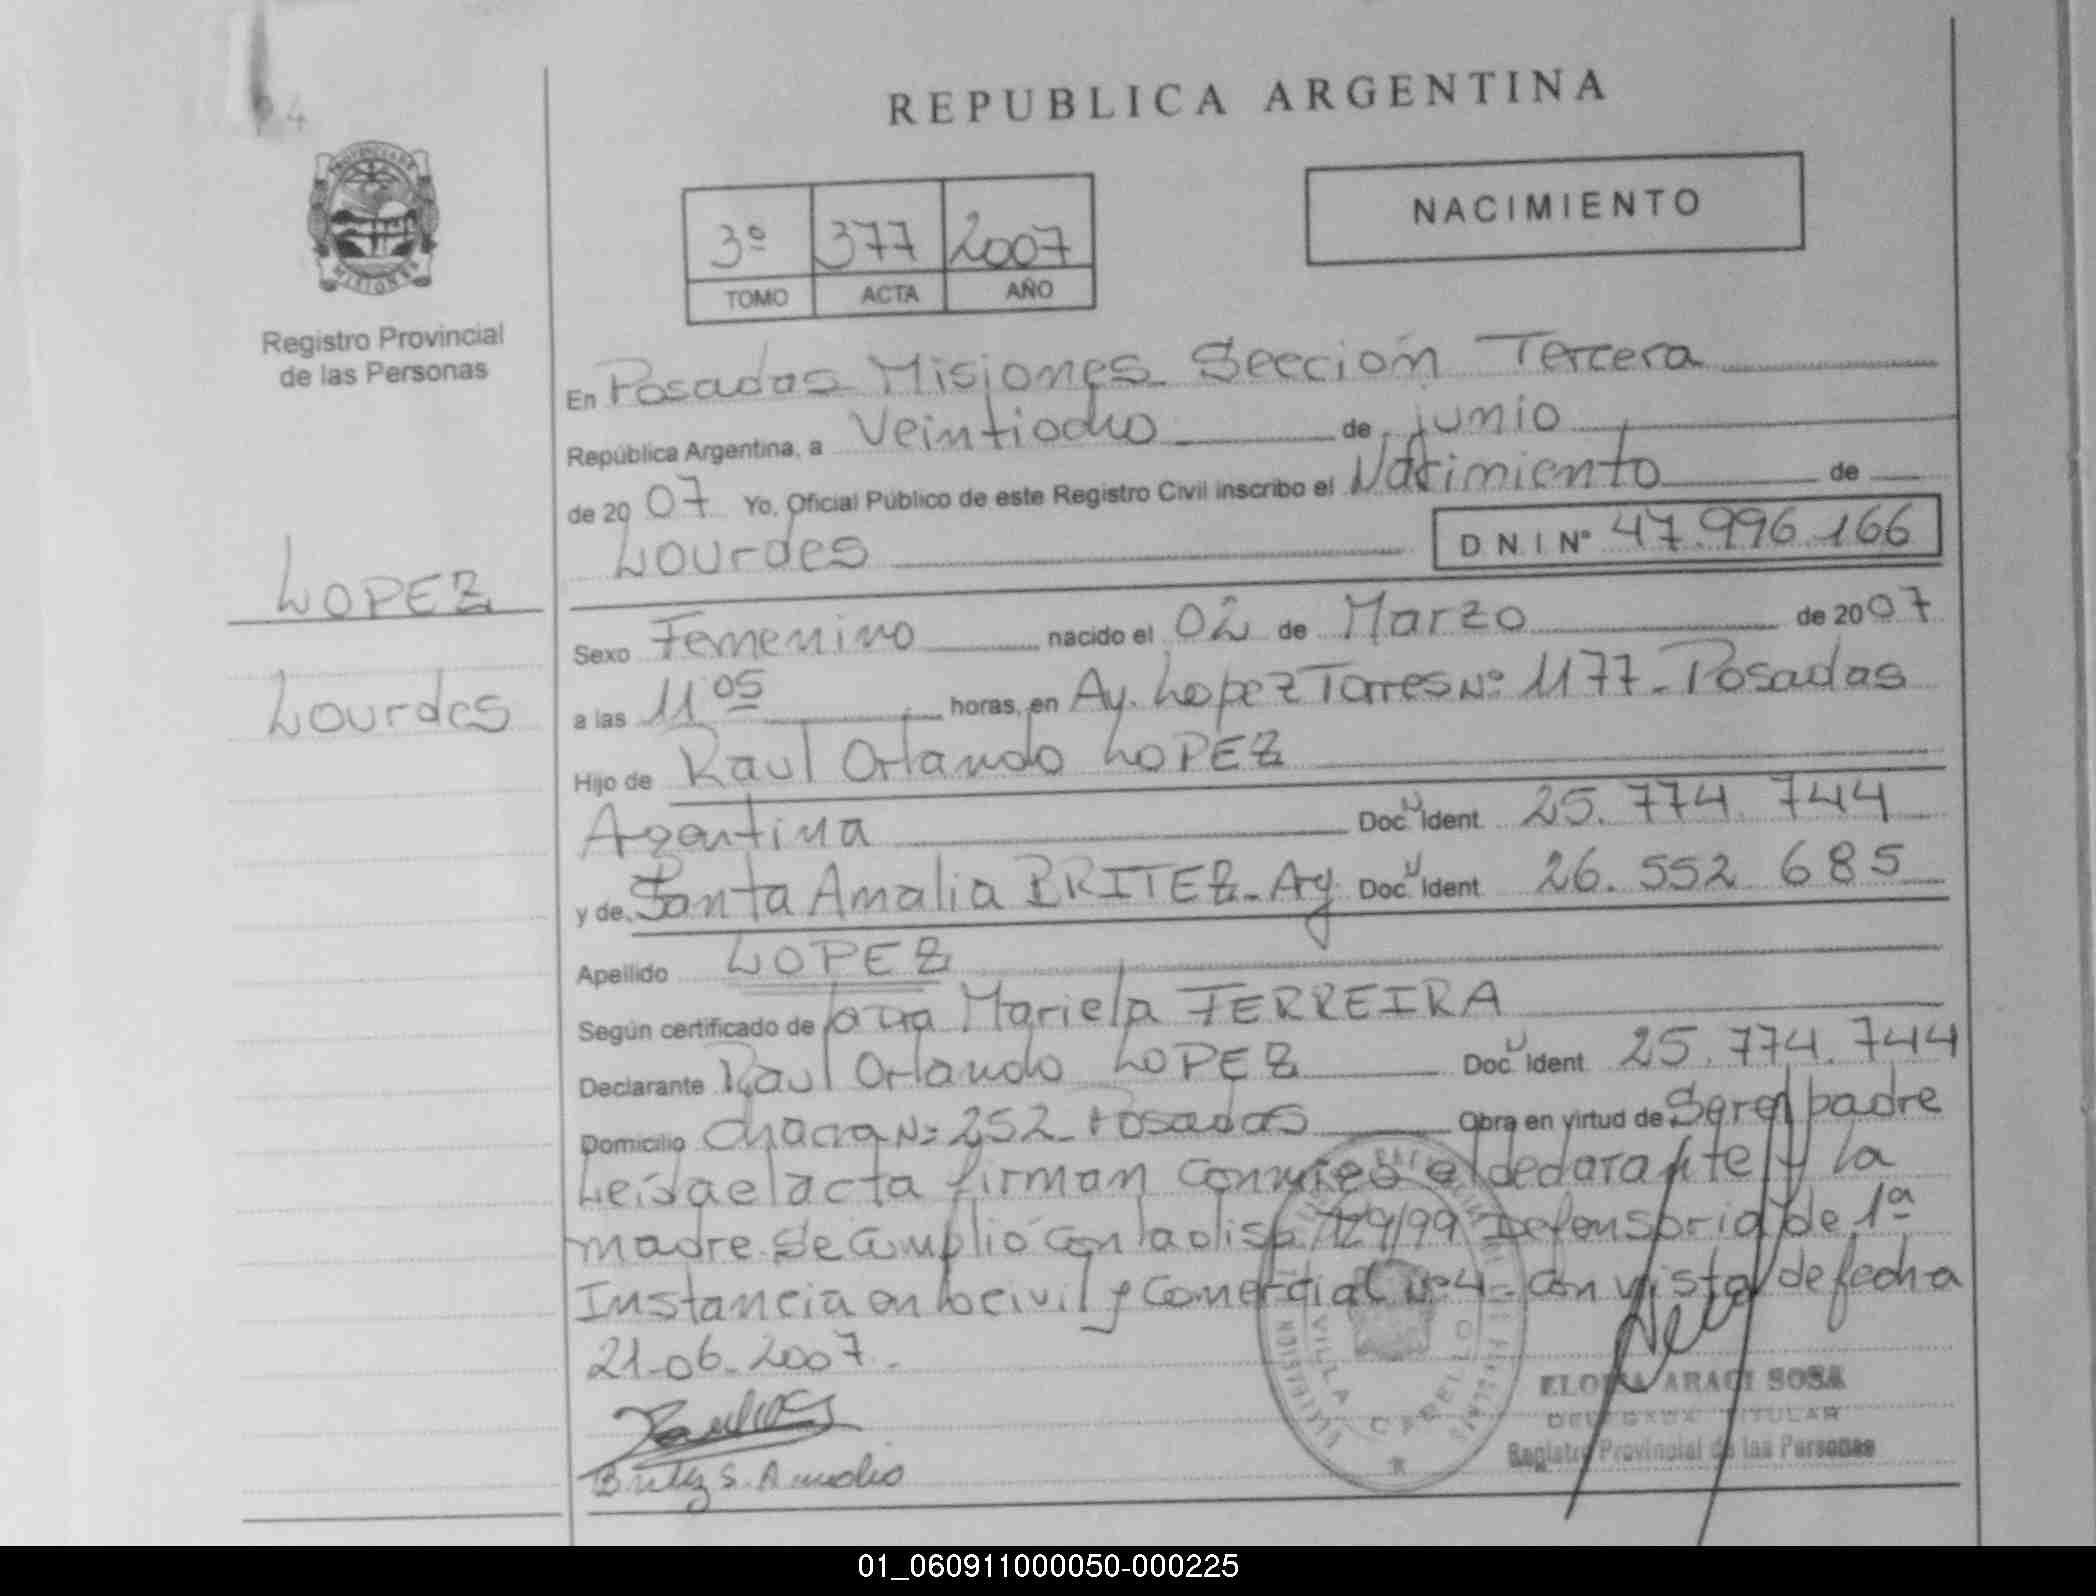 REPUBLICA ARGENTINA
PROVINCIA DE
MISIONES
Registro Provincial
de las Personas
3º 377 2007
TOMO ACTA AÑO
NACIMIENTO
En Posadas Misiones Sección Tercera
República Argentina, a Veintiocho de junio
de 2007 Yo, Oficial Público de este Registro Civil inscribo el Nacimiento de
Lourdes D N I Nº 47.996.166
LOPEZ
Lourdes
Sexo Femenino nacido el 02 de Marzo de 2007
a las 11 05 horas, en Av. Lopez Torres Nº 1177 - Posadas
Hijo de Raul Orlando LOPEZ
Argentina Doc. Ident. 25.774.744
y de Santa Amalia BRITEZ - Arg Doc. Ident. 26.552 685
Apellido LOPEZ
Según certificado de la Dra Mariela FERREIRA
Declarante Raul Orlando LOPEZ Doc. Ident. 25.774.744
Domicilio Chacra Nº 252 - Posadas Obra en virtud de Ser el padre
Leída el acta firman conmigo el declarante y la
madre. Se cumplió con la disp. 129/99 Defensoria de 1ª
Instancia en lo civil y Comercial nº 4 - con vista de fecha
21-06-2007.
Britez S. Amalia
VILLA CABELLO
ELOISA ARACI SOSA
DELEGADA TITULAR
Registro Provincial de las Personas
01_060911000050-000225